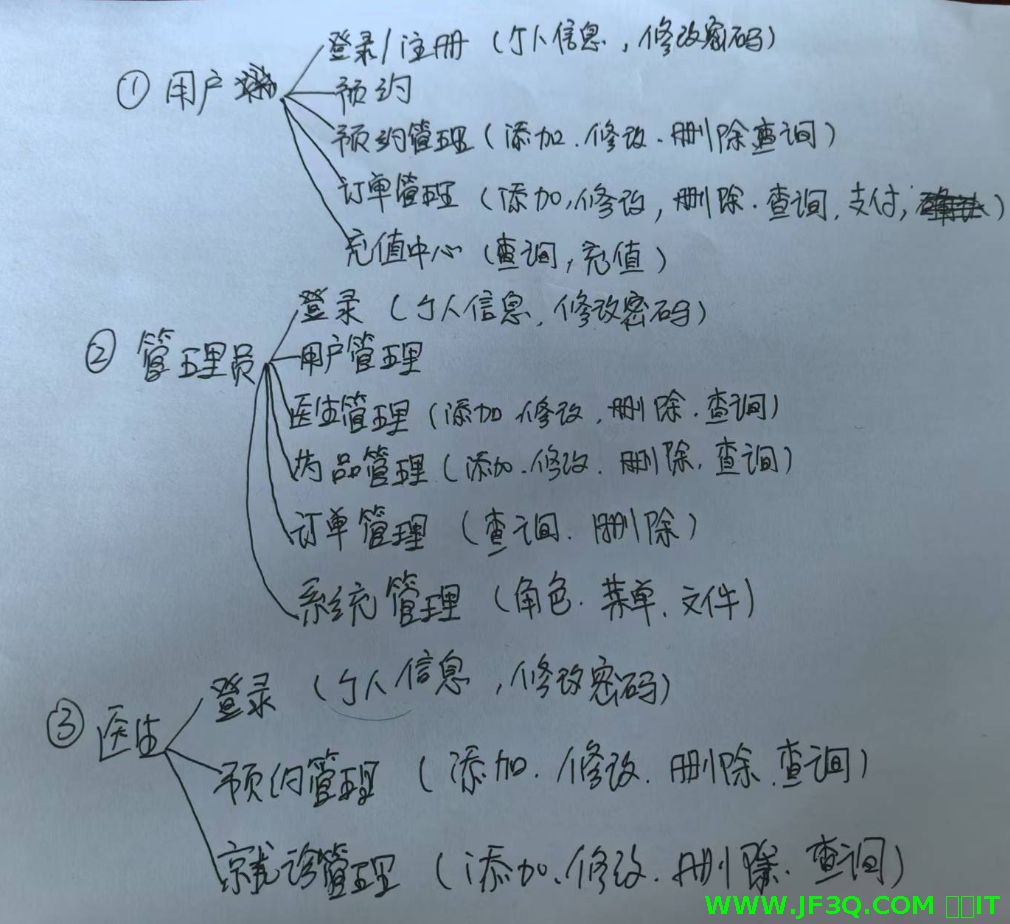 登录/注册（个人信息，修改密码）
① 用户
预约
预约管理（添加.修改.删除查询）
订单管理（添加,修改,删除.查询,支付,）
充值中心（查询,充值）
登录（个人信息,修改密码）
② 管理员
用户管理
医生管理（添加.修改.删除.查询）
药品管理（添加.修改.删除,查询）
订单管理（查询.删除）
系统管理（角色.菜单.文件）
登录（个人信息,修改密码）
③ 医生
预约管理（添加.修改.删除.查询）
就诊管理（添加.修改.删除.查询）
WWW.JF3Q.COM IT